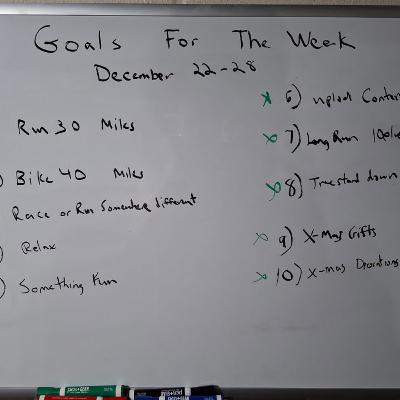 Goals For The Week
December 22-28
Run 30 Miles
) Bike 40 Miles
Race or Run Somewhere different
) Relax
) Something Fun
x 6) upload Conten
x 7) Long Run
x 8) down
x 9) X-Mas Gifts
x 10) X-mas Decorations